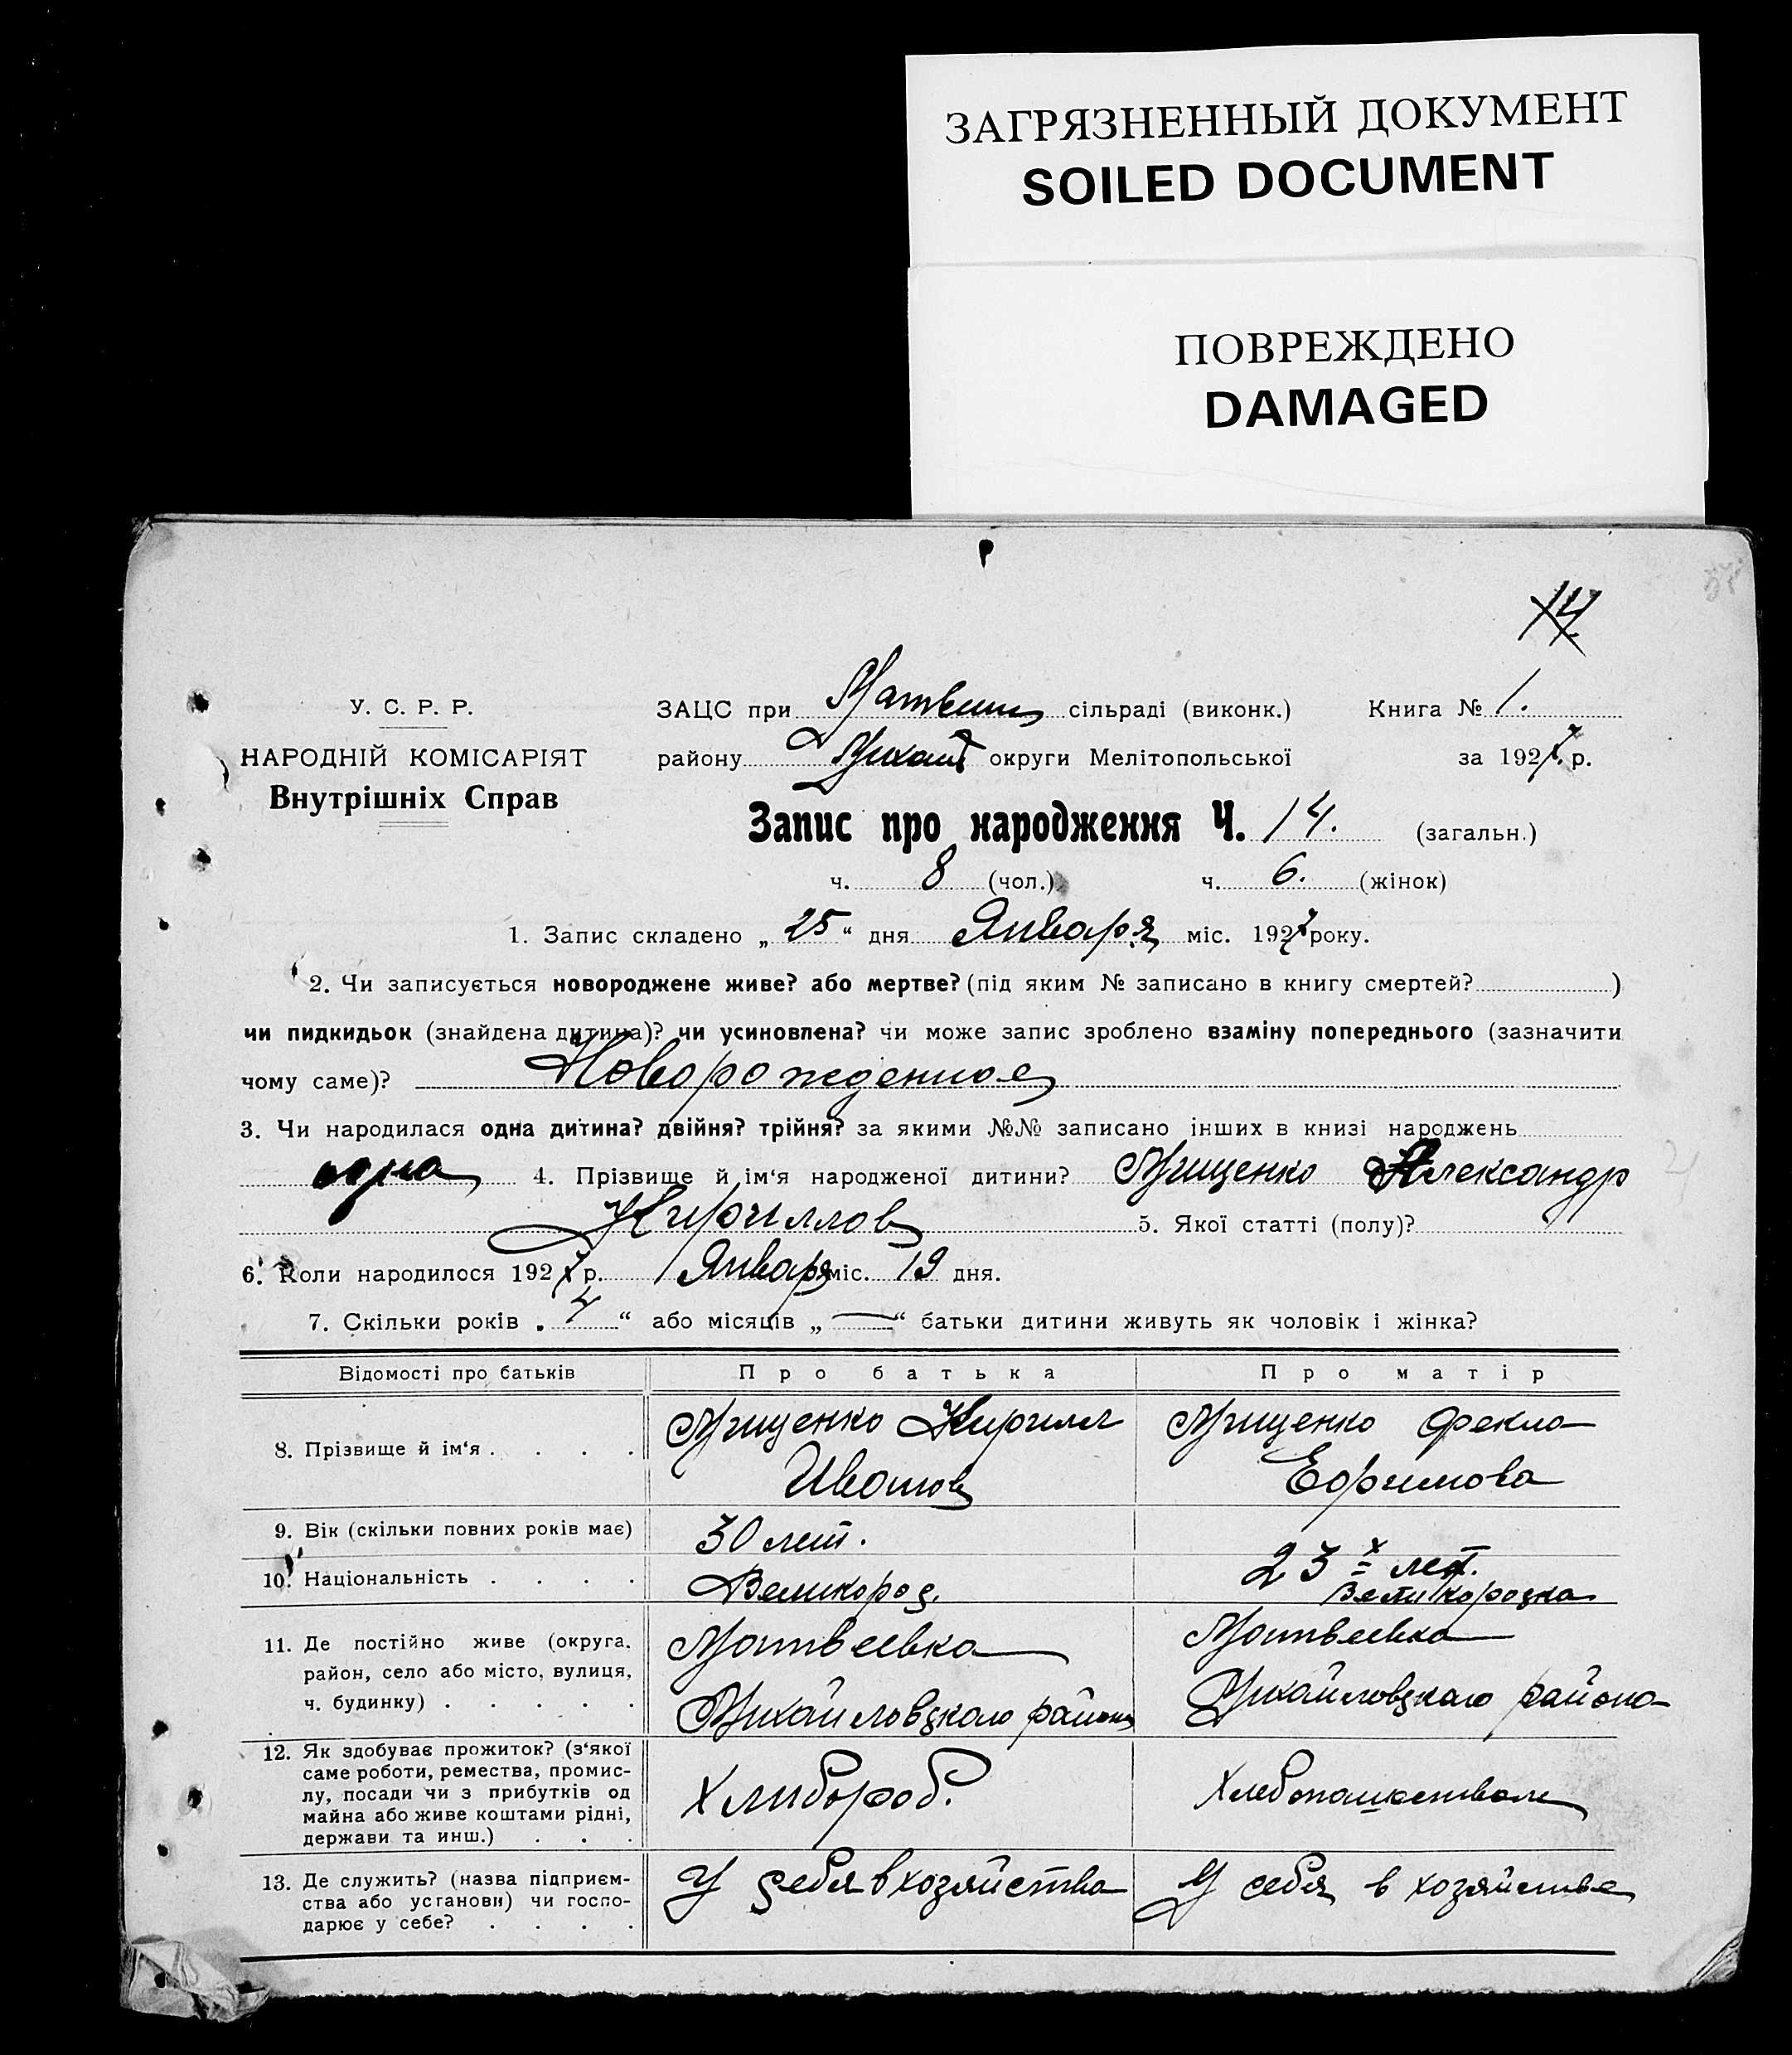 ЗАГРЯЗНЕННЫЙ ДОКУМЕНТ
SOILED DOCUMENT
ПОВРЕЖДЕНО
DAMAGED
14
У. С. Р. Р.
НАРОДНІЙ КОМІСАРІЯТ
Внутрішніх Справ
ЗАЦС при сільраді (виконк.) Книга № 1.
району Михайл округи Мелітопольської за 1927 р.
Запис про народження Ч. 14. (загальн.)
ч. 8 (чол.) ч. 6. (жінок)
1. Запис складено „ 25 “ дня Января міс. 1927 року.
2. Чи записується новороджене живе? або мертве? (під яким № записано в книгу смертей? )
чи пидкидьок (знайдена дитина)? чи усиновлена? чи може запис зроблено взаміну попереднього (зазначити
чому саме)? Новорожденное
3. Чи народилася одна дитина? двійня? трійня? за якими №№ записано інших в книзі народжень
одна 4. Прізвище й ім'я народженої дитини? Мищенко Александр
Кириллов 5. Якої статті (полу)?
6. Коли народилося 1927 р. Января міс. 19 дня.
7. Скільки років „ 4 “ або місяців „ — “ батьки дитини живуть як чоловік і жінка?
Відомості про батьків Про батька Про матір
8. Прізвище й ім'я . . . . Мищенко Кирилл Иванов Мищенко Фекла Ефимова
9. Вік (скільки повних років має) 30 лет. 23 х лет.
10. Національність . . . . Великорос. Великороска
11. Де постійно живе (округа, район, село або місто, вулиця, ч. будинку) . . . . . Матвеевка Михайловского района Матвеевка Михайловского района
12. Як здобуває прожиток? (з'якої саме роботи, ремества, промислу, посади чи з прибутків од майна або живе коштами рідні, держави та инш.) . . . Хлибороб. Хлебопашеством
13. Де служить? (назва підприємства або установи) чи господарює у себе? . . . . У себя в хозяйства У себя в хозяйстве